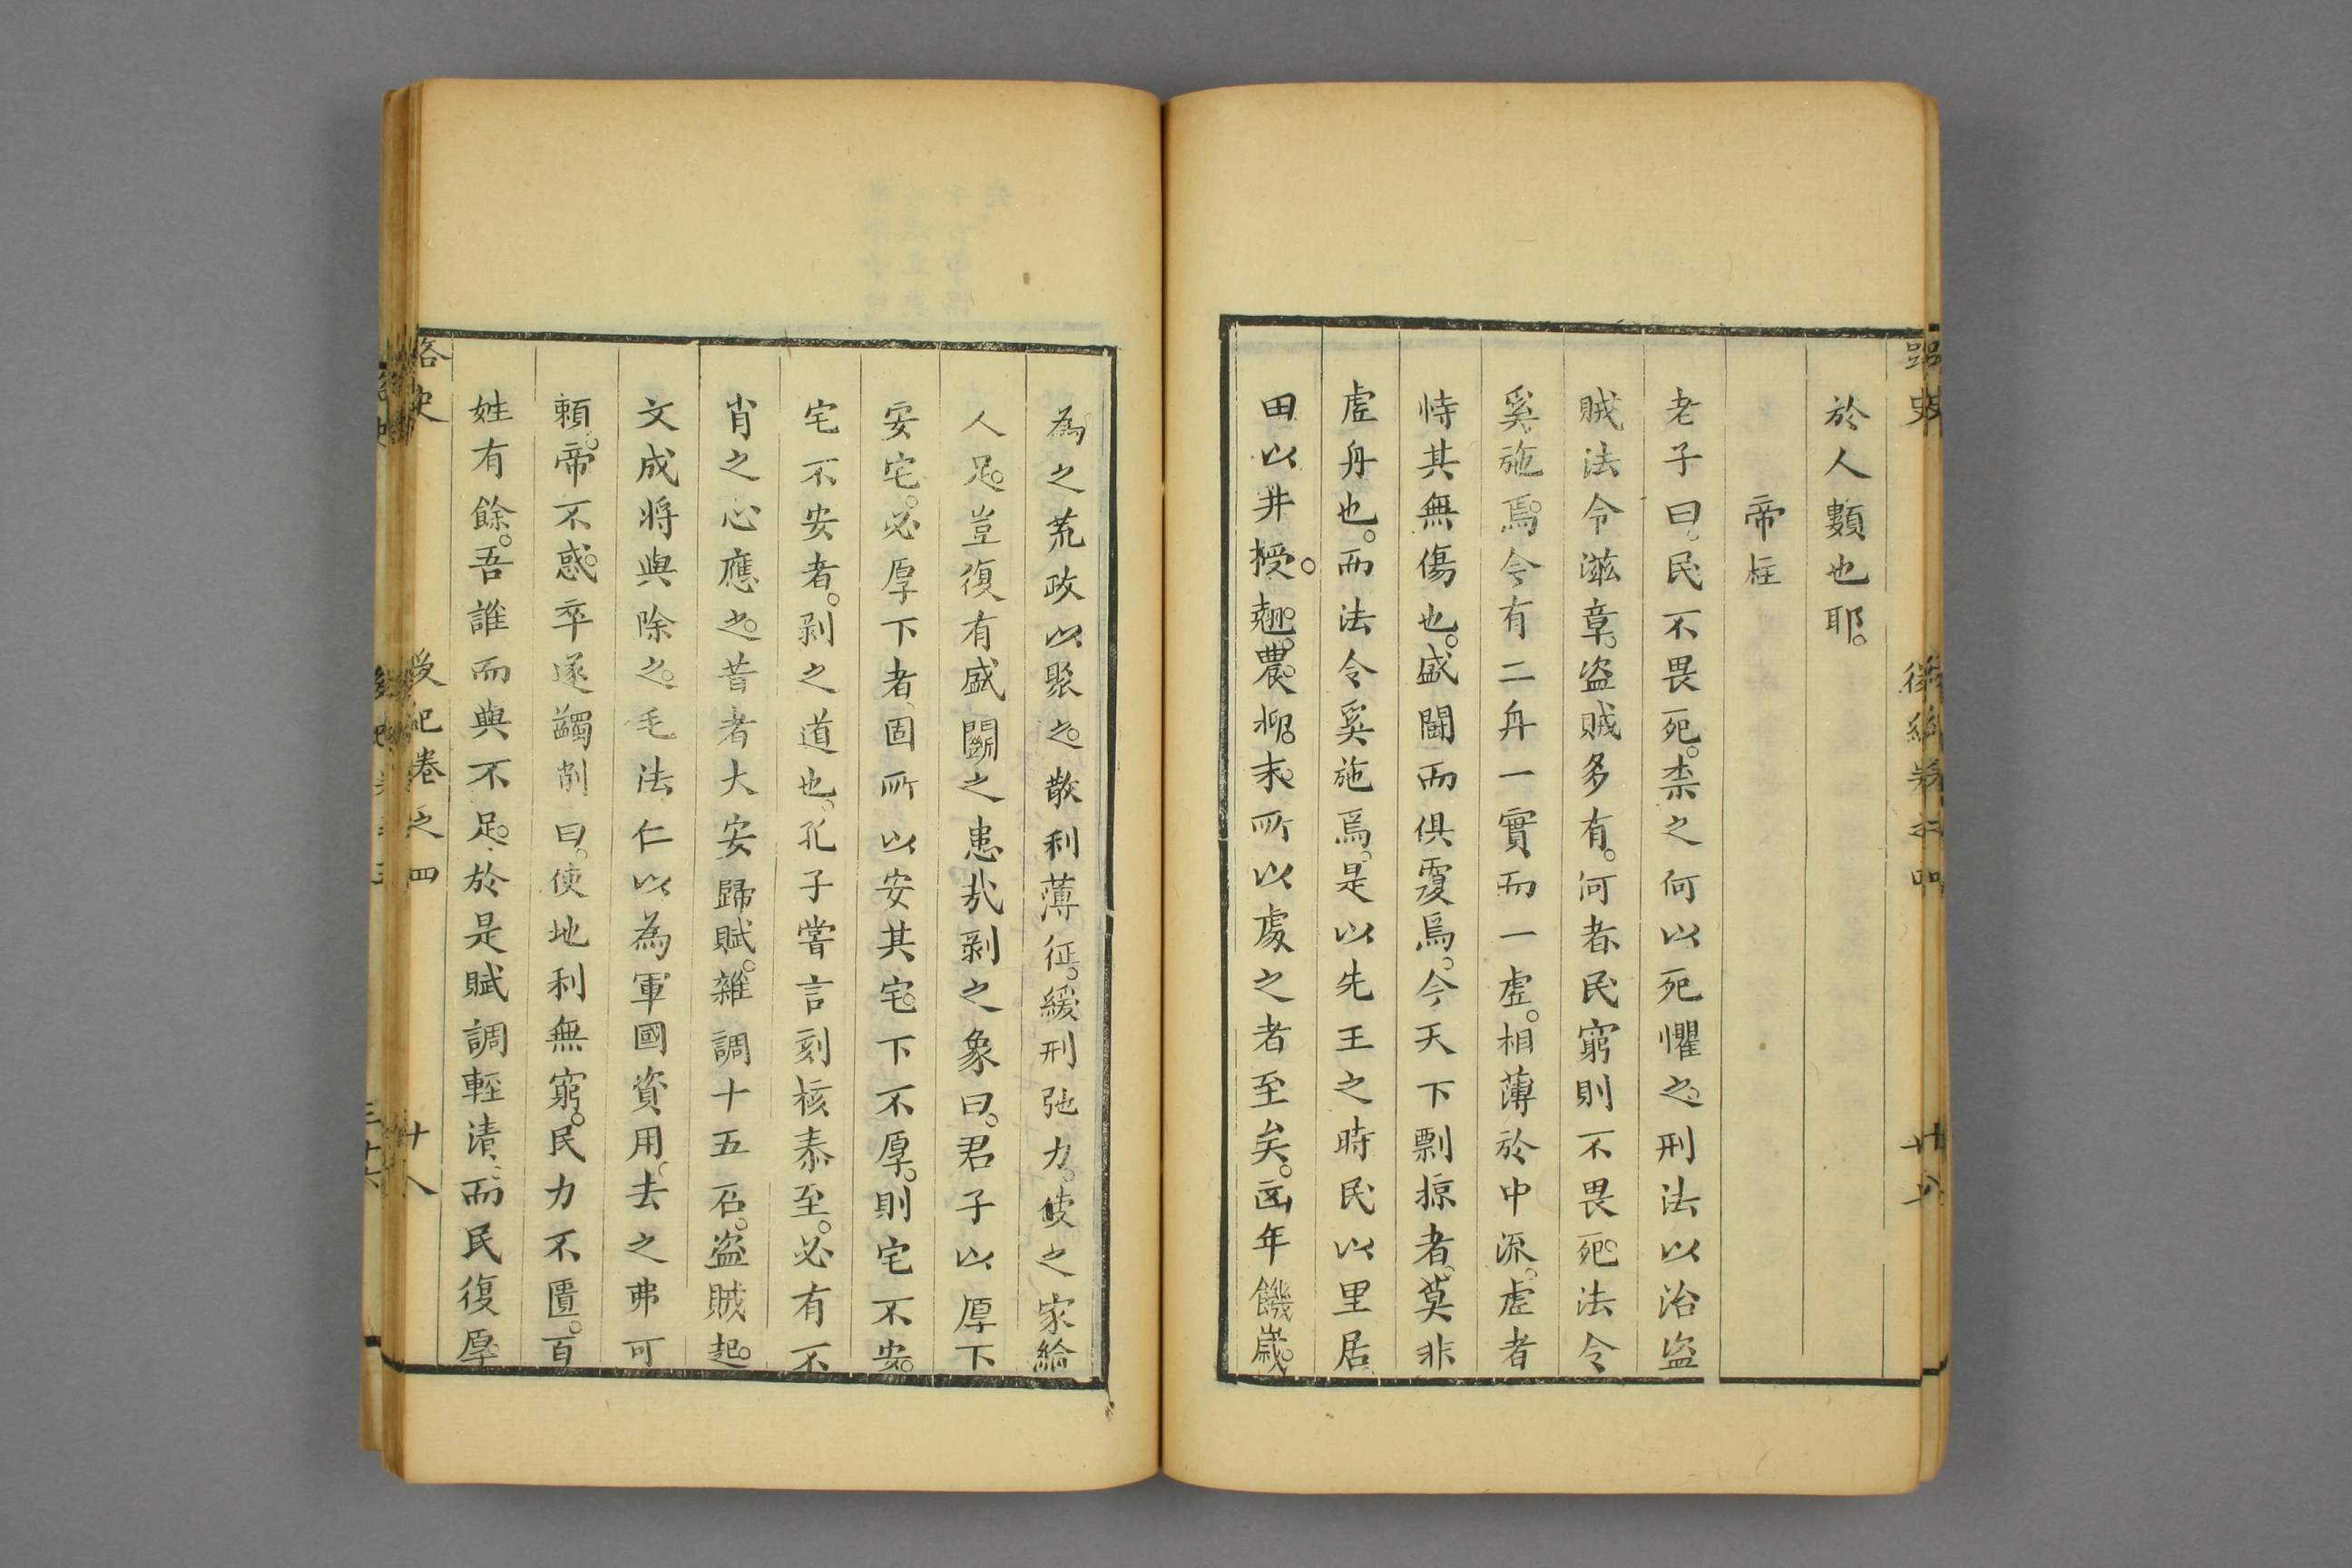 於人類也耶。
帝柱
老子曰。民不畏死。柰之何以死懼之。刑法以治盜
賊法令滋章。盜賊多有。何者。民窮則不畏死。法令
奚施焉。今有二舟一實而一虛。相薄於中流。虛者
恃其無傷也。盛鬪而俱覆焉。今天下剽掠者。莫非
虛舟也。而法令奚施焉。是以先王之時民以里居
田以井授。趣。農。抑。末。所以處之者至矣。凶年饑歲。
為之荒政以聚之。散利薄征。緩刑弛力。使之家給
人足。豈復有盛鬬之患哉剥之象曰。君子以厚下
安宅。必厚下者。固所以安其宅。下不厚。則宅不安。
宅不安者。剥之道也。孔子嘗言刻核泰至。必有不
肖之心應之。昔者大安歸賦。雜調十五石。盜賊起。
文成將與除之。毛法仁以為軍國資用。去之弗可
頼。帝不惑。卒遂蠲削曰。使地利無窮。民力不匱。百
姓有餘。吾誰而與不足。於是賦調輕清。而民復厚
路史
後紀卷之四
十八